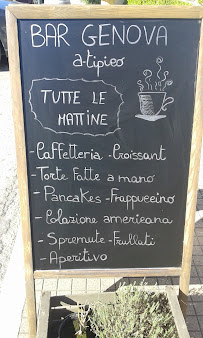 BAR GENOVA
a-tipico
TUTTE LE
MATTINE
- Caffetteria - Croissant
- Torte Fatte a mano
- Pancakes - Frappuccino
- Colazione americana
- Spremute - Frullati
- Aperitivo